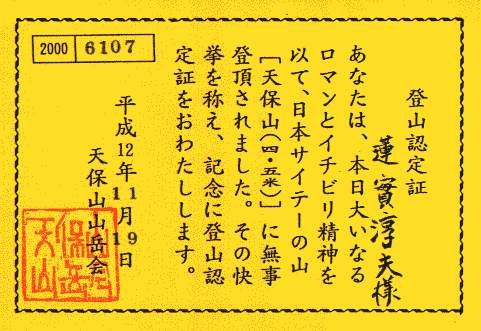 2000 6107
登山認定証
蓮實淳夫様
あなたは、本日大いなる
ロマンとイチビリ精神を
以て、日本サイテーの山
［天保山(四・五米)］に無事
登頂されました。その快
挙を称え、記念に登山認
定証をおわたしします。
平成12年11月19日
天保山山岳会
天保山山岳会